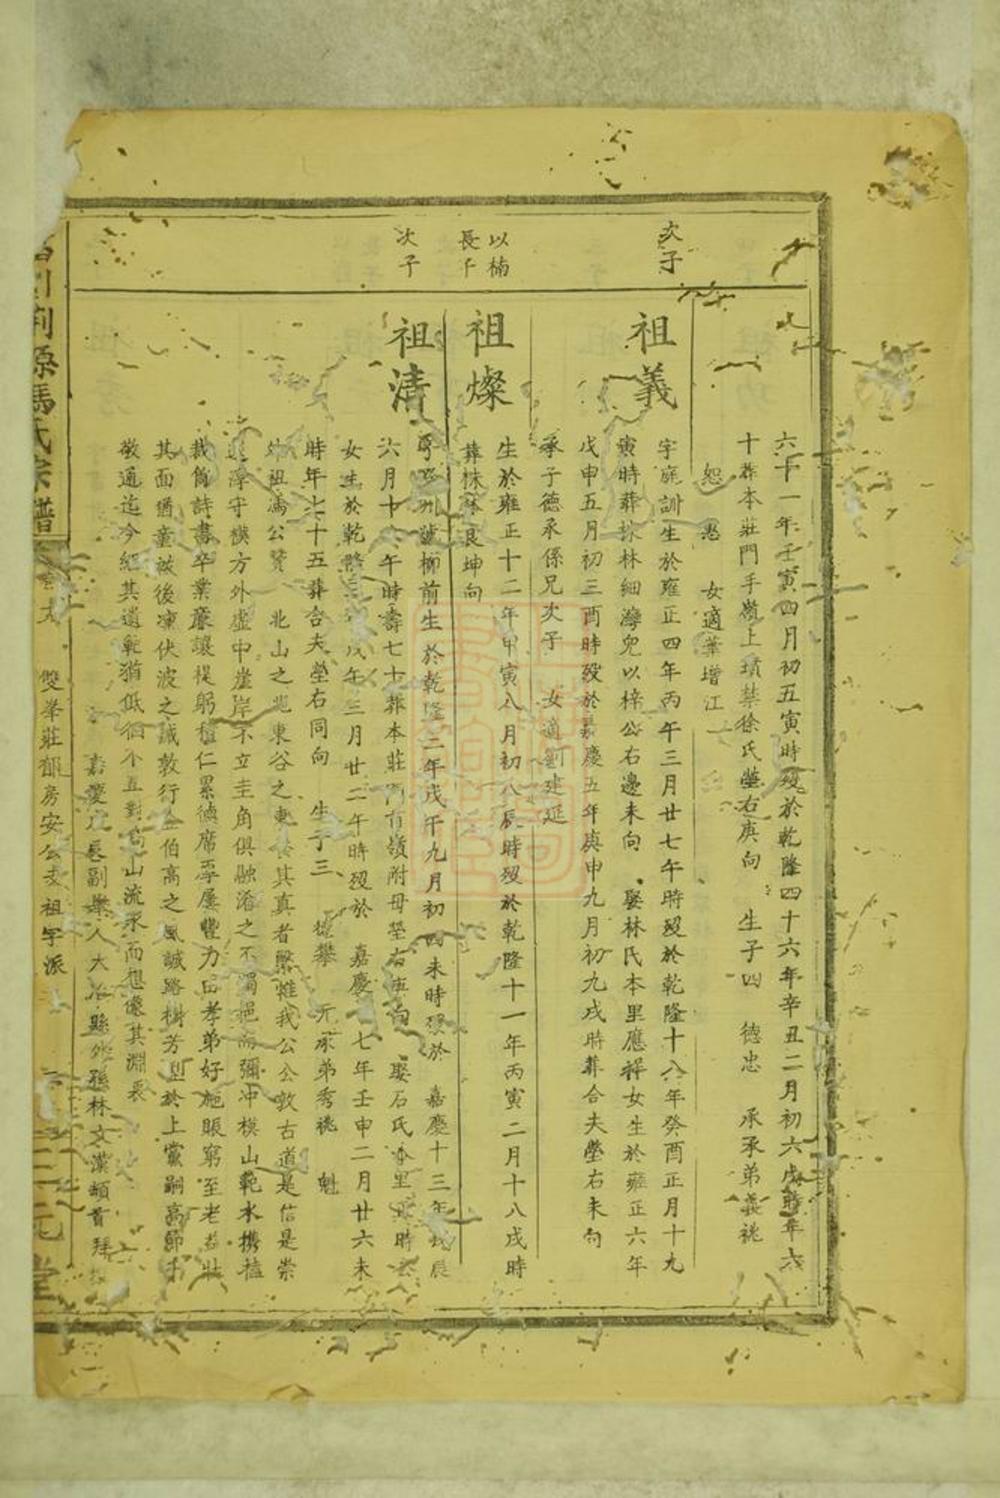 六十一年壬寅四月初五寅時歿於乾隆四十六年辛丑二月初六戌時年六
十葬本莊門手嶺上墳禁徐氏塋右庚向 生子四 德忠 承承弟義祧
恕 愚 女適葉增江
次子
祖義
字庭訓生於雍正四年丙午三月廿七午時歿於乾隆十八年癸酉正月十九
寅時葬抹林細灣兜以梓公右邊未向 娶林氏本里應祥女生於雍正六年
戊申五月初三酉時歿於嘉慶五年庚申九月初九戌時葬合夫塋右未向
承子德承係兄次子 女適劉建延
以楠
長子
祖燦
生於雍正十二年甲寅八月初八辰時歿於乾隆十一年丙寅二月十八戌時
葬林 艮坤向
次子
祖清
柳前生於乾隆三年戊午九月初四未時歿於 嘉慶十三年戊辰
六月十 午時壽七十葬本莊 嶺附母塋右庚向 娶石氏本里 時
女生於乾隆 年三月廿二午時歿於 嘉慶 七年壬申二月廿六未
時年七十五葬合夫塋右同向 生子三 攀 元承弟秀祧 魁
祖馮公贊 北山之北東谷之東 其真者繄惟我公公敦古道是信是崇
淳守樸方外虛中崖岸不立圭角俱融淆之不濁挹 彌冲模山範水携榼
裁筒詩書卒業廉讓禔躬種仁累德席厚履豐力田孝弟好施賑窮至老益壯
其面猶童誡後凍伏波之誠敦行 伯高之風誠路樹芳型於上黨嗣高節于
敬通迄今紹其遺範猶低徊不 對高山流水而想像其淵衷
嘉慶 副舉人大冶縣 孫林文漢頓首拜
荊源馮氏宗譜 雙峯莊 房安公支祖字派 三元堂